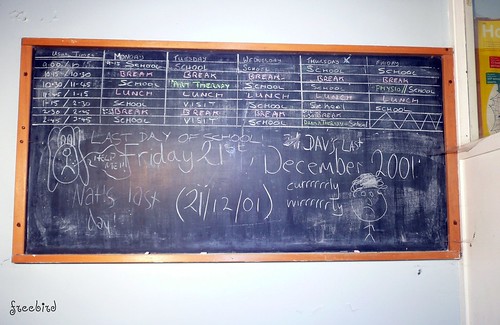 USUAL TIMES MONDAY TUESDAY WEDNESDAY THURSDAY FRIDAY
9.15 SCHOOL SCHOOL SCHOOL SCHOOL SCHOOL
10.15 / 10.30 BREAK BREAK BREAK BREAK BREAK
10.30 / 11.45 SCHOOL ART THERAPY SCHOOL SCHOOL PHYSIO / SCHOOL
LUNCH LUNCH LUNCH LUNCH LUNCH
1.15 / 2.30 SCHOOL VISIT SCHOOL SCHOOL SCHOOL
2.30 / 2.45 BREAK BREAK BREAK BREAK
SCHOOL VISIT SCHOOL SCHOOL
LAST DAY OF SCHOOL! DAV'S LAST
HELP ME!!
Friday 21st, December 2001.
Nat's last day!
(21/12/01)
currrrrly
wirrrrrrty
freebird